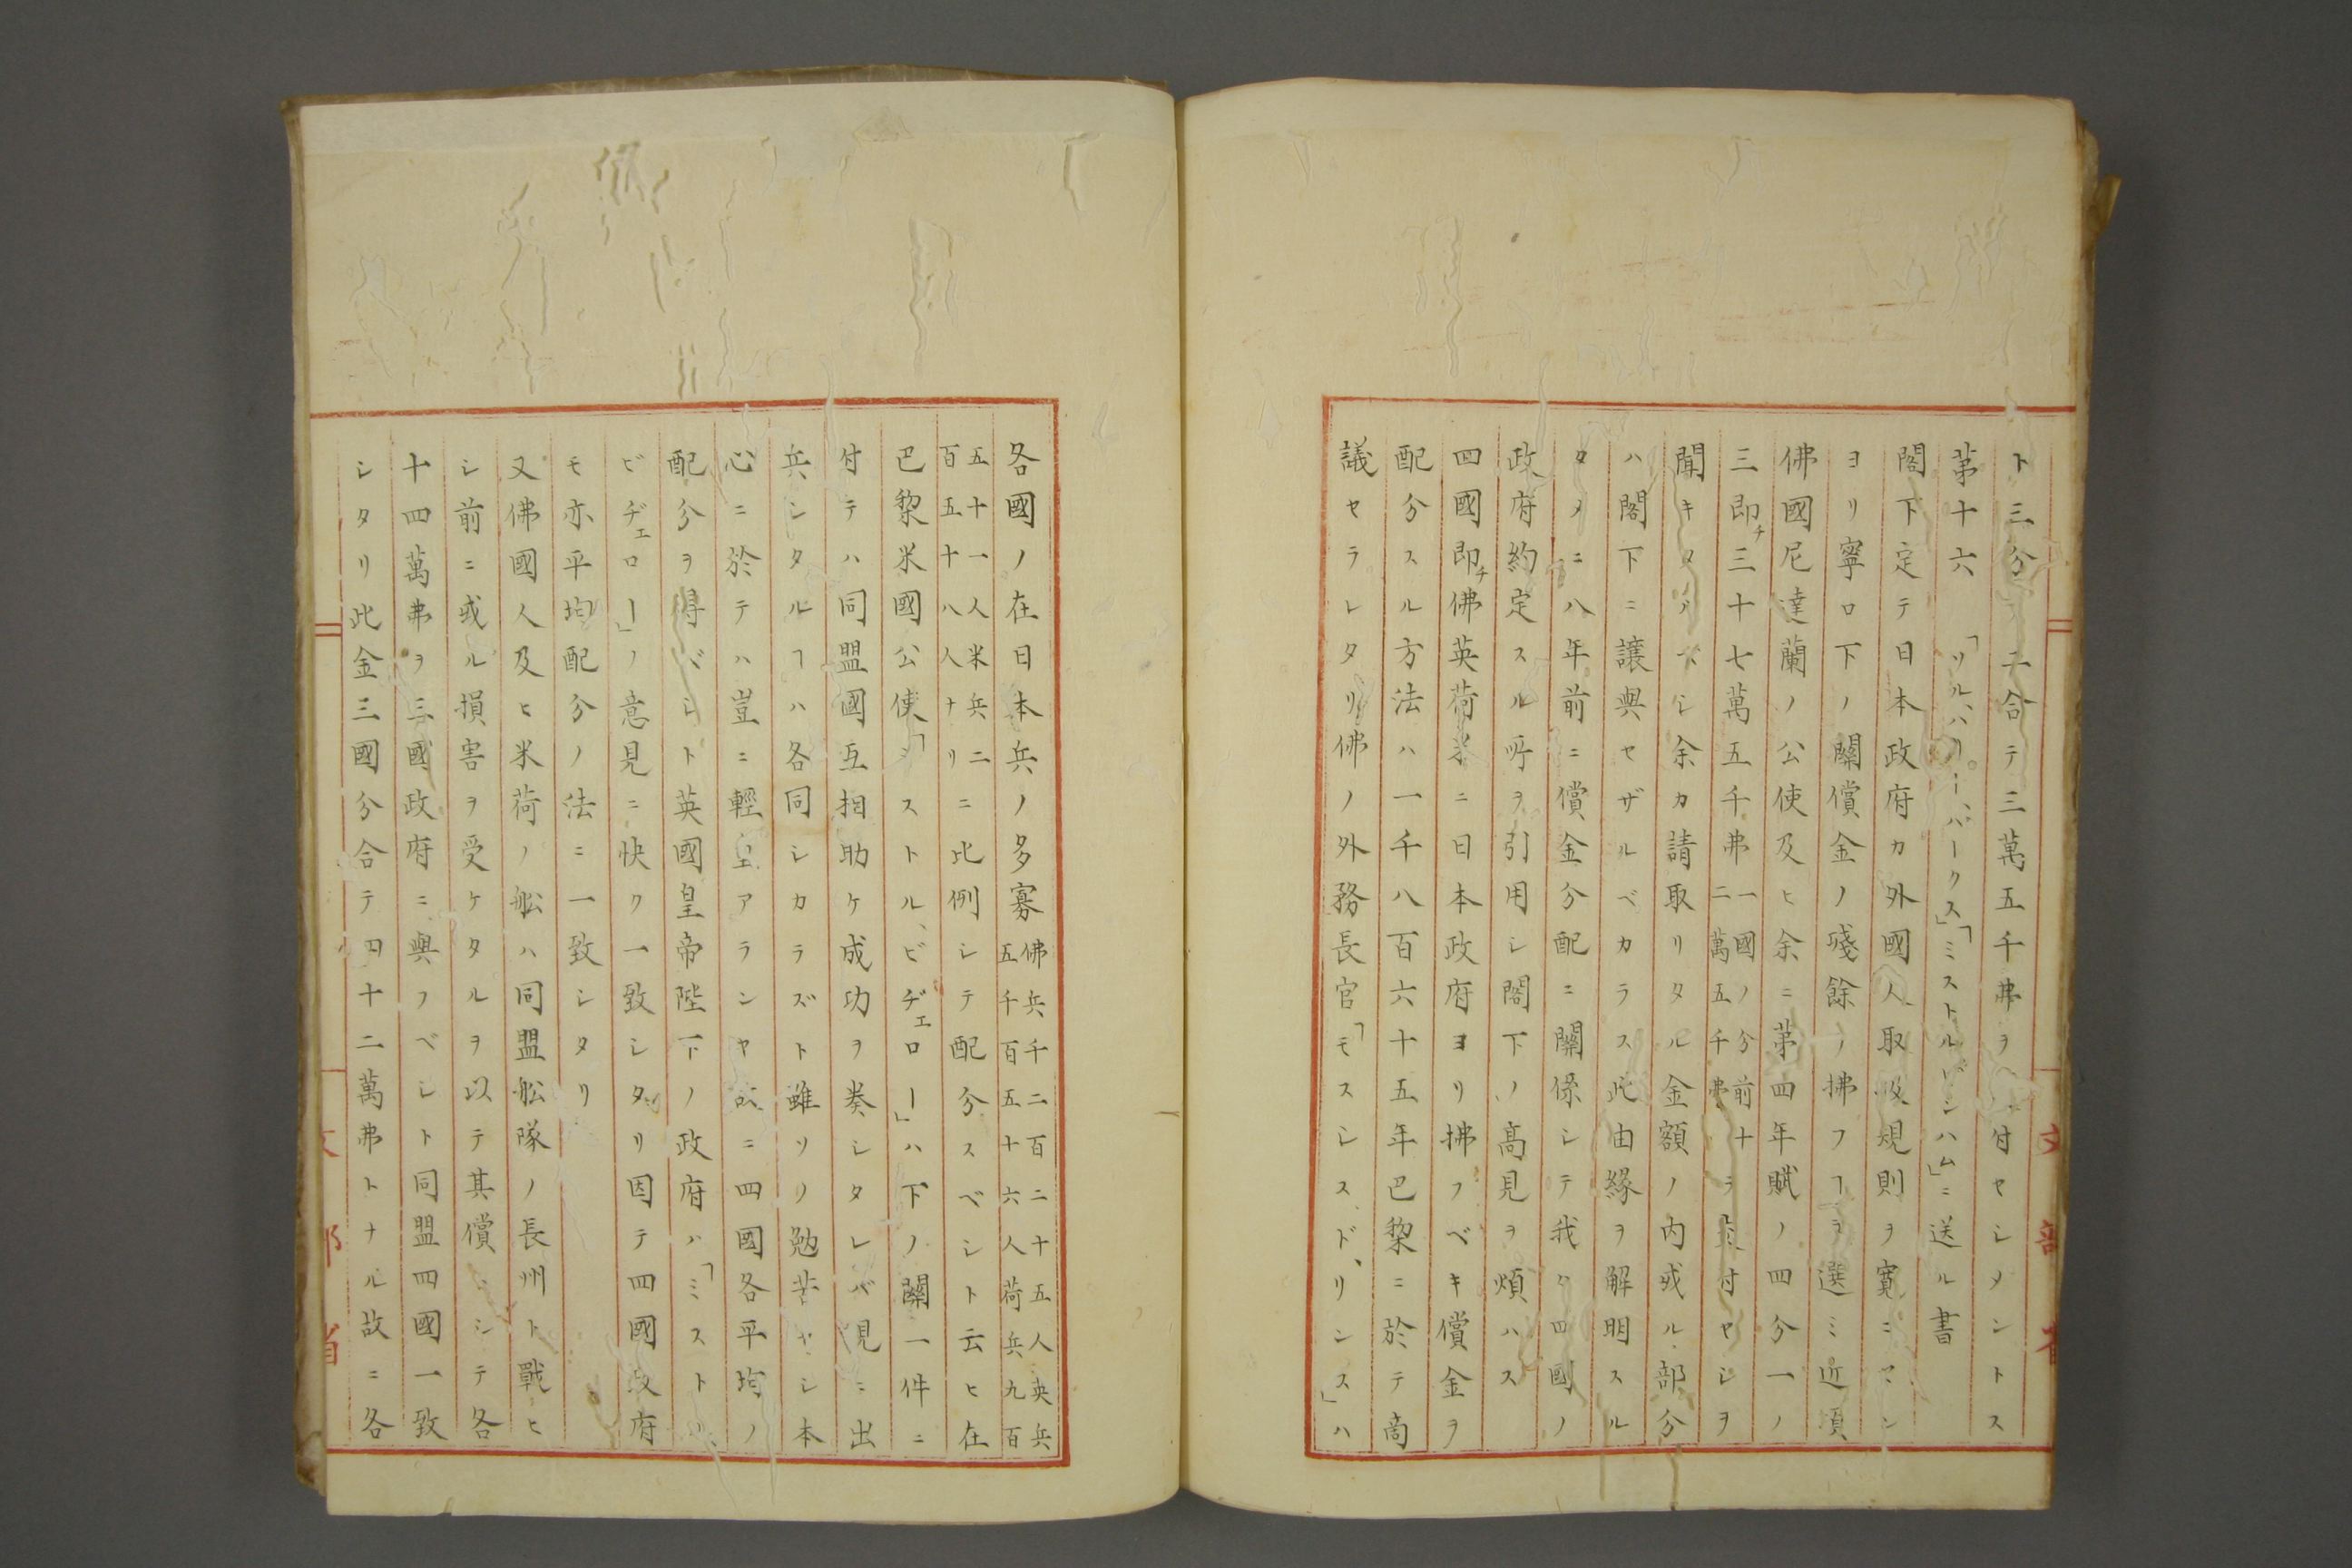 ト三分ノ二合テ三萬五千弗ヲ付セシメントス
第十六 「リル、ハリー、パークス」「ミストル、ビンハム」ニ送ル書
閣下定テ日本政府カ外國人取扱規則ヲ寛ニセン
ヨリ寧ロ下ノ關償金ノ殘餘ノ拂フヿヲ選ミ近頃
佛國尼達蘭ノ公使及ヒ余ニ第四年賦ノ四分一ノ
三即チ三十七萬五千弗一國ノ分前十二萬五千弗ヲ付セシヲ
聞キタルベシ余カ請取リタル金額ノ内或ル部分
ハ閣下ニ讓與セザルベカラス此由緣ヲ解明スル
タメニ八年前ニ償金分配ニ關係シテ我カ四國ノ
政府約定スル所ヲ引用シ閣下ノ高見ヲ煩ハス
四國即チ佛英荷米ニ日本政府ヨリ拂フベキ償金ヲ
配分スル方法ハ一千八百六十五年巴黎ニ於テ商
議セラレタリ佛ノ外務長官「モスシレス、ド、リンス」ハ
各國ノ在日本兵ノ多寡佛兵千二百二十五人英兵五千百五十六人荷兵九百
五十一人米兵二百五十八人ナリニ比例シテ配分スベシト云ヒ在
巴黎米國公使「ミストル、ビヂェロー」ハ下ノ關一件ニ
付テハ同盟國互相助ケ成功ヲ奏シタレバ見ニ出
兵シタルヿハ各同シカラズト雖ソノ勉苦セシ本
心ニ於テハ豈ニ輕重アランヤ故ニ四國各平均ノ
配分ヲ得ベシト英國皇帝陛下ノ政府ハ「ミストル、
ビヂェロー」ノ意見ニ快ク一致シタリ因テ四國政府
モ亦平均配分ノ法ニ一致シタリ
又佛國人及ヒ米荷ノ舩ハ同盟舩隊ノ長州ト戰ヒ
シ前ニ或ル損害ヲ受ケタルヲ以テ其償トシテ各
十四萬弗ヲ三國政府ニ與フベシト同盟四國一致
シタリ此金三國分合テ四十二萬弗トナル故ニ各
文部省